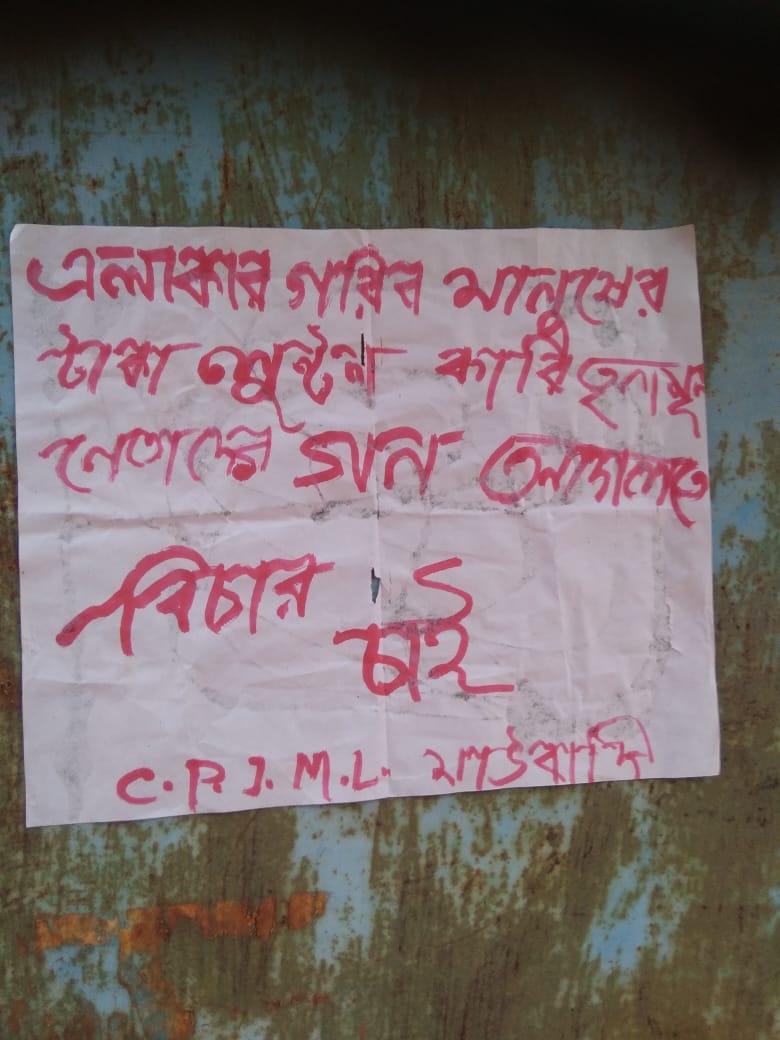 এলাকার গরিব মানুষের
টাকা লুন্টন কারি তৃনামূল
নেতাদের গন আদালতে
বিচার
চাই
C.P.I.M.L. মাউবাদী